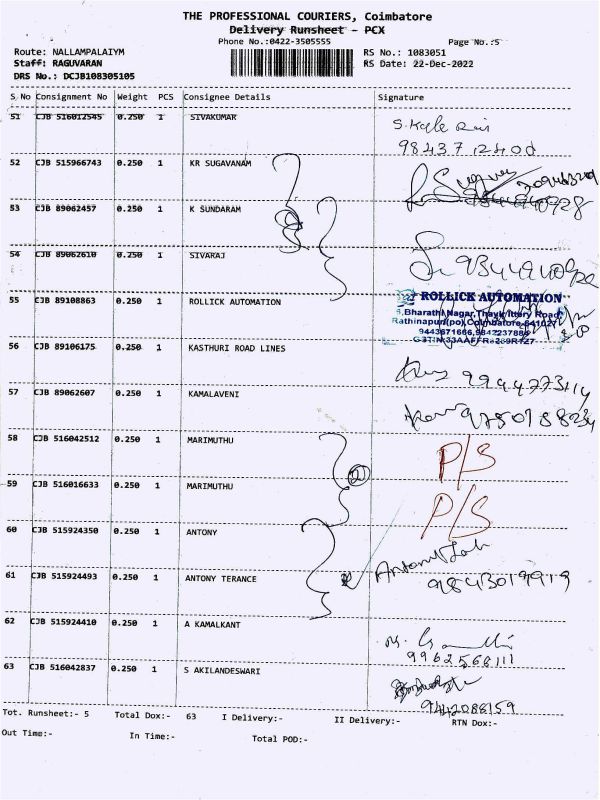 THE PROFESSIONAL COURIERS, Coimbatore
Delivery Runsheet - PCX
Phone No.:0422-3505555 Page No.:5
Route: NALLAMPALAIYM RS No.: 1083051
Staff: RAGUVARAN RS Date: 22-Dec-2022
DRS No.: DCJB108305105
S No Consignment No Weight PCS Consignee Details Signature
51 CJB 516012545 0.250 1 SIVAKUMAR
98437 12400
52 CJB 515966743 0.250 1 KR SUGAVANAM
53 CJB 89062457 0.250 1 K SUNDARAM
54 CJB 89062610 0.250 1 SIVARAJ
55 CJB 89108863 0.250 1 ROLLICK AUTOMATION
ROLLICK AUTOMATION
Bharathi Nagar, Road
Rathinapuri(po), Coimbatore-641027
56 CJB 89106175 0.250 1 KASTHURI ROAD LINES
9944773114
57 CJB 89062607 0.250 1 KAMALAVENI
58 CJB 516042512 0.250 1 MARIMUTHU
P/S
2
59 CJB 516016633 0.250 1 MARIMUTHU
P/S
60 CJB 515924350 0.250 1 ANTONY
61 CJB 515924493 0.250 1 ANTONY TERANCE
9843019919
62 CJB 515924410 0.250 1 A KAMALKANT
9962568111
63 CJB 516042837 0.250 1 S AKILANDESWARI
9442088159
Tot. Runsheet:- 5 Total Dox:- 63 I Delivery:- II Delivery:- RTN Dox:-
Out Time:- In Time:- Total POD:-